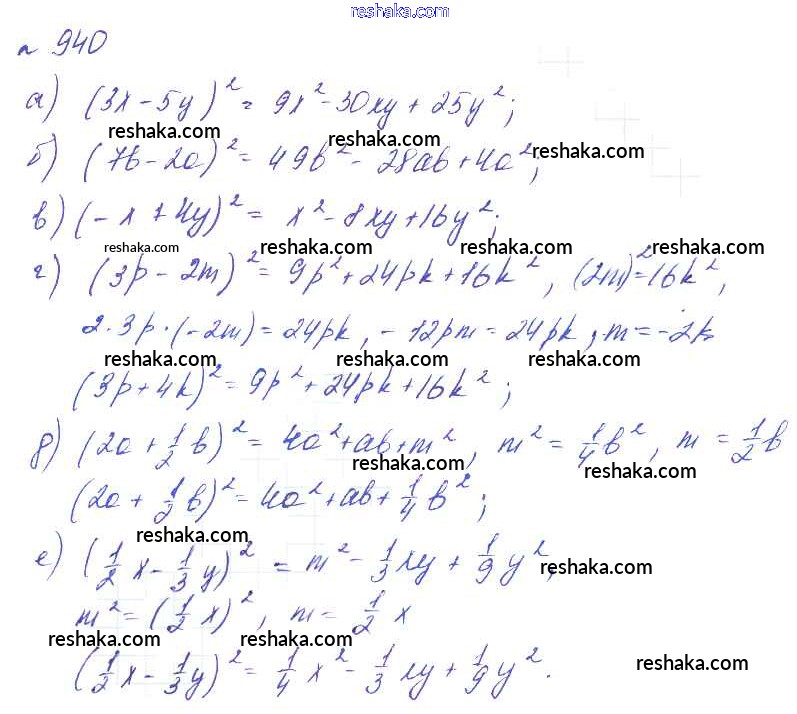 reshaka.com
№ 940
а) (3x - 5y)² = 9x² - 30xy + 25y²;
reshaka.com reshaka.com reshaka.com
б) (7b - 2a)² = 49b² - 28ab + 4a²;
в) (-x + 4y)² = x² - 8xy + 16y²;
reshaka.com reshaka.com reshaka.com
г) (3p - 2m)² = 9p² + 24pk + 16k², (2m)² = 16k²,
2·3p·(-2m) = 24pk, -12pm = 24pk, m = -2k
reshaka.com reshaka.com reshaka.com
(3p + 4k)² = 9p² + 24pk + 16k²;
д) (2a + ½b)² = 4a² + ab + m², m² = ¼b², m = ½b
reshaka.com reshaka.com reshaka.com
(2a + ½b)² = 4a² + ab + ¼b²;
reshaka.com reshaka.com
е) (½x - ⅓y)² = m² - ⅓xy + ⅑y²,
m² = (½x)², m = ½x
reshaka.com reshaka.com reshaka.com
(½x - ⅓y)² = ¼x² - ⅓xy + ⅑y².
reshaka.com